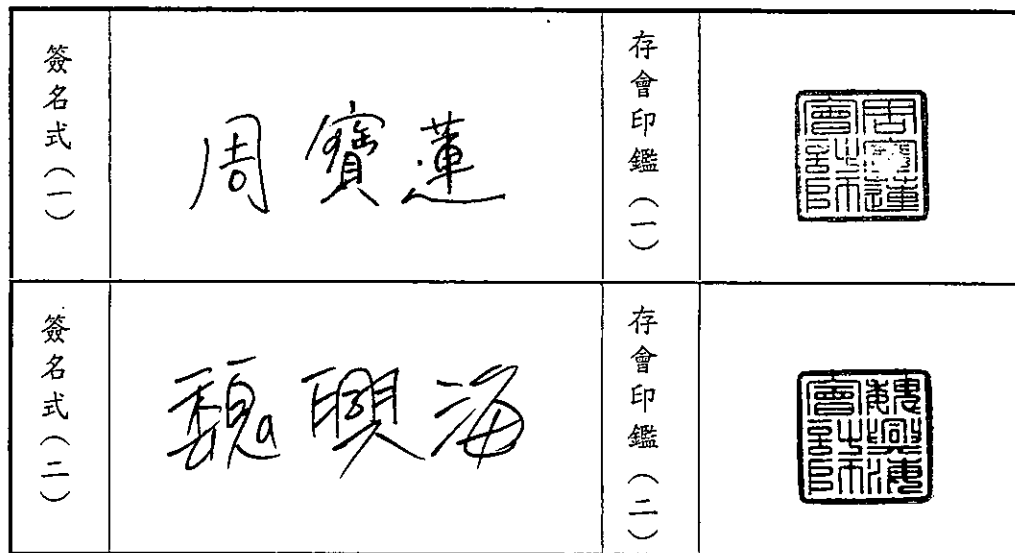 簽名式(一)
周寶蓮
存會印鑑(一)
周寶蓮會計師
簽名式(二)
魏興海
存會印鑑(二)
魏興海會計師